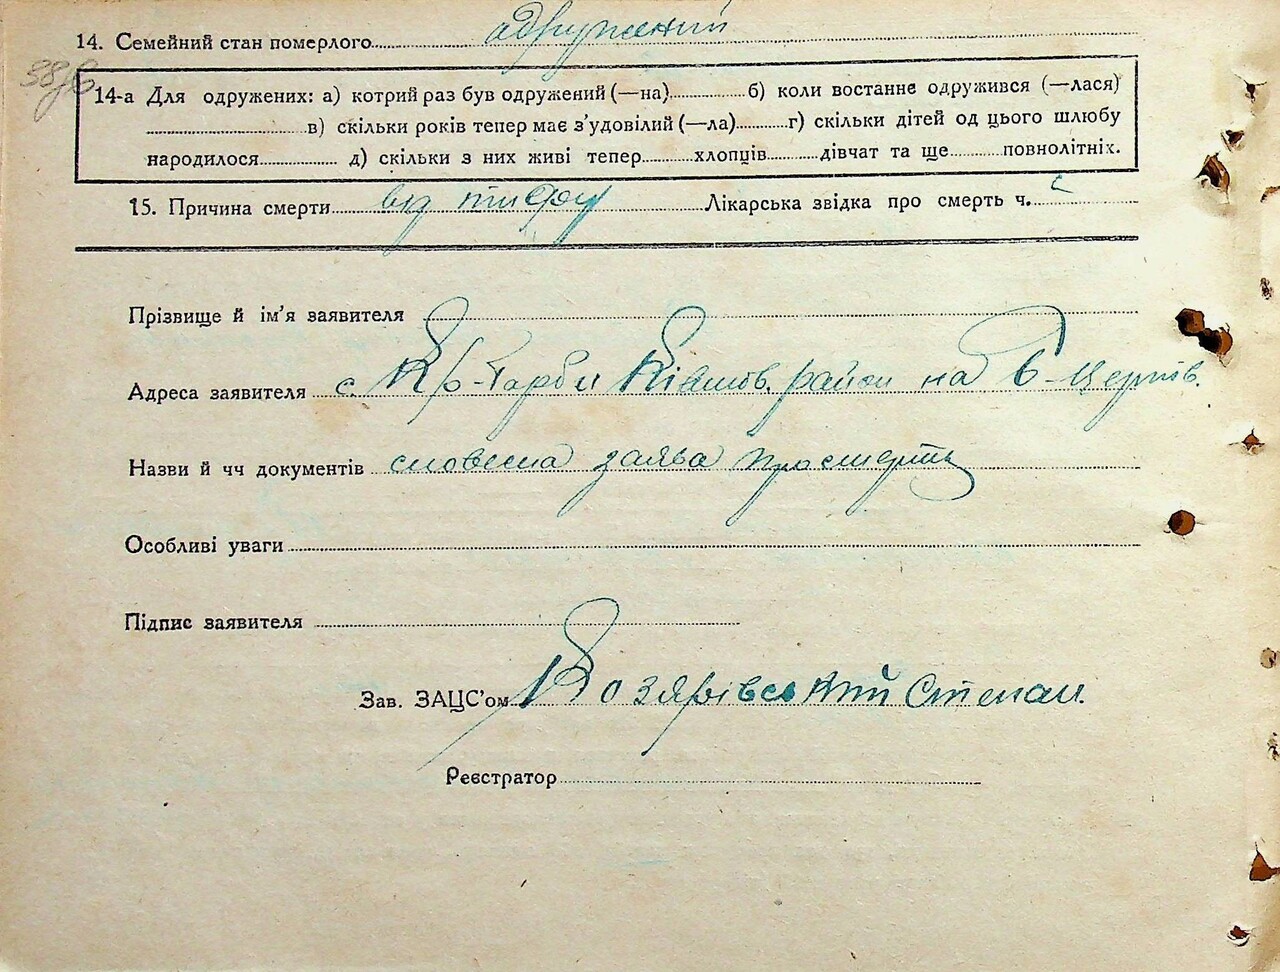 14. Семейний стан померлого одружений
38
14-а Для одружених: а) котрий раз був одружений (—на) б) коли востаннє одружився (—лася)
в) скільки років тепер має з'удовілий (—ла) г) скільки дітей од цього шлюбу
народилося д) скільки з них живі тепер хлопців дівчат та ще повнолітніх.
15. Причина смерти від тифу Лікарська звідка про смерть ч.
Прізвище й ім'я заявителя
Адреса заявителя с. район на
Назви й чч документів словесна заява про смерть
Особливі уваги
Підпис заявителя
Зав. ЗАЦС'ом Козярівський Степан.
Реєстратор